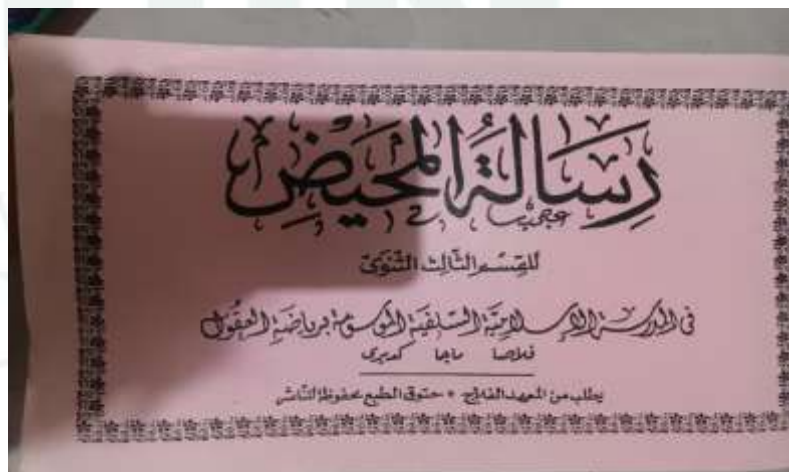 رِسَالَةُ المَحِيْضِ
للقسم الثالث الثنوى
فى المدرسة الإسلامية السلفية الموسومة برياضة العقول
فلاصا ماجا كديرى
يطلب من المعهد الفلاح * حقوق الطبع محفوظة للناشر